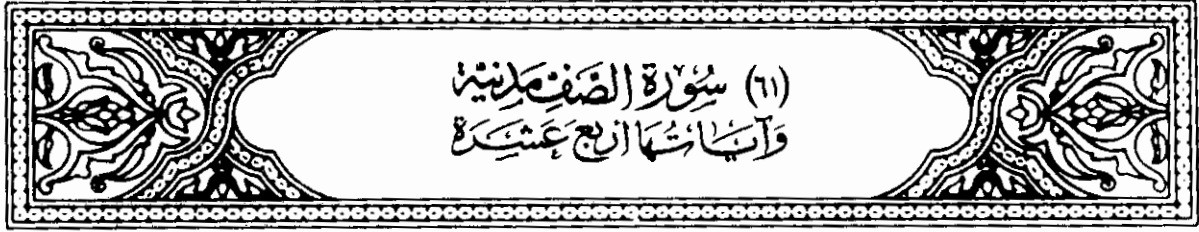 (٦١) سُورَة الصَّفِّ مَدنِيَّة
وَآيَاتُهَا أَرْبَع عَشَرَة